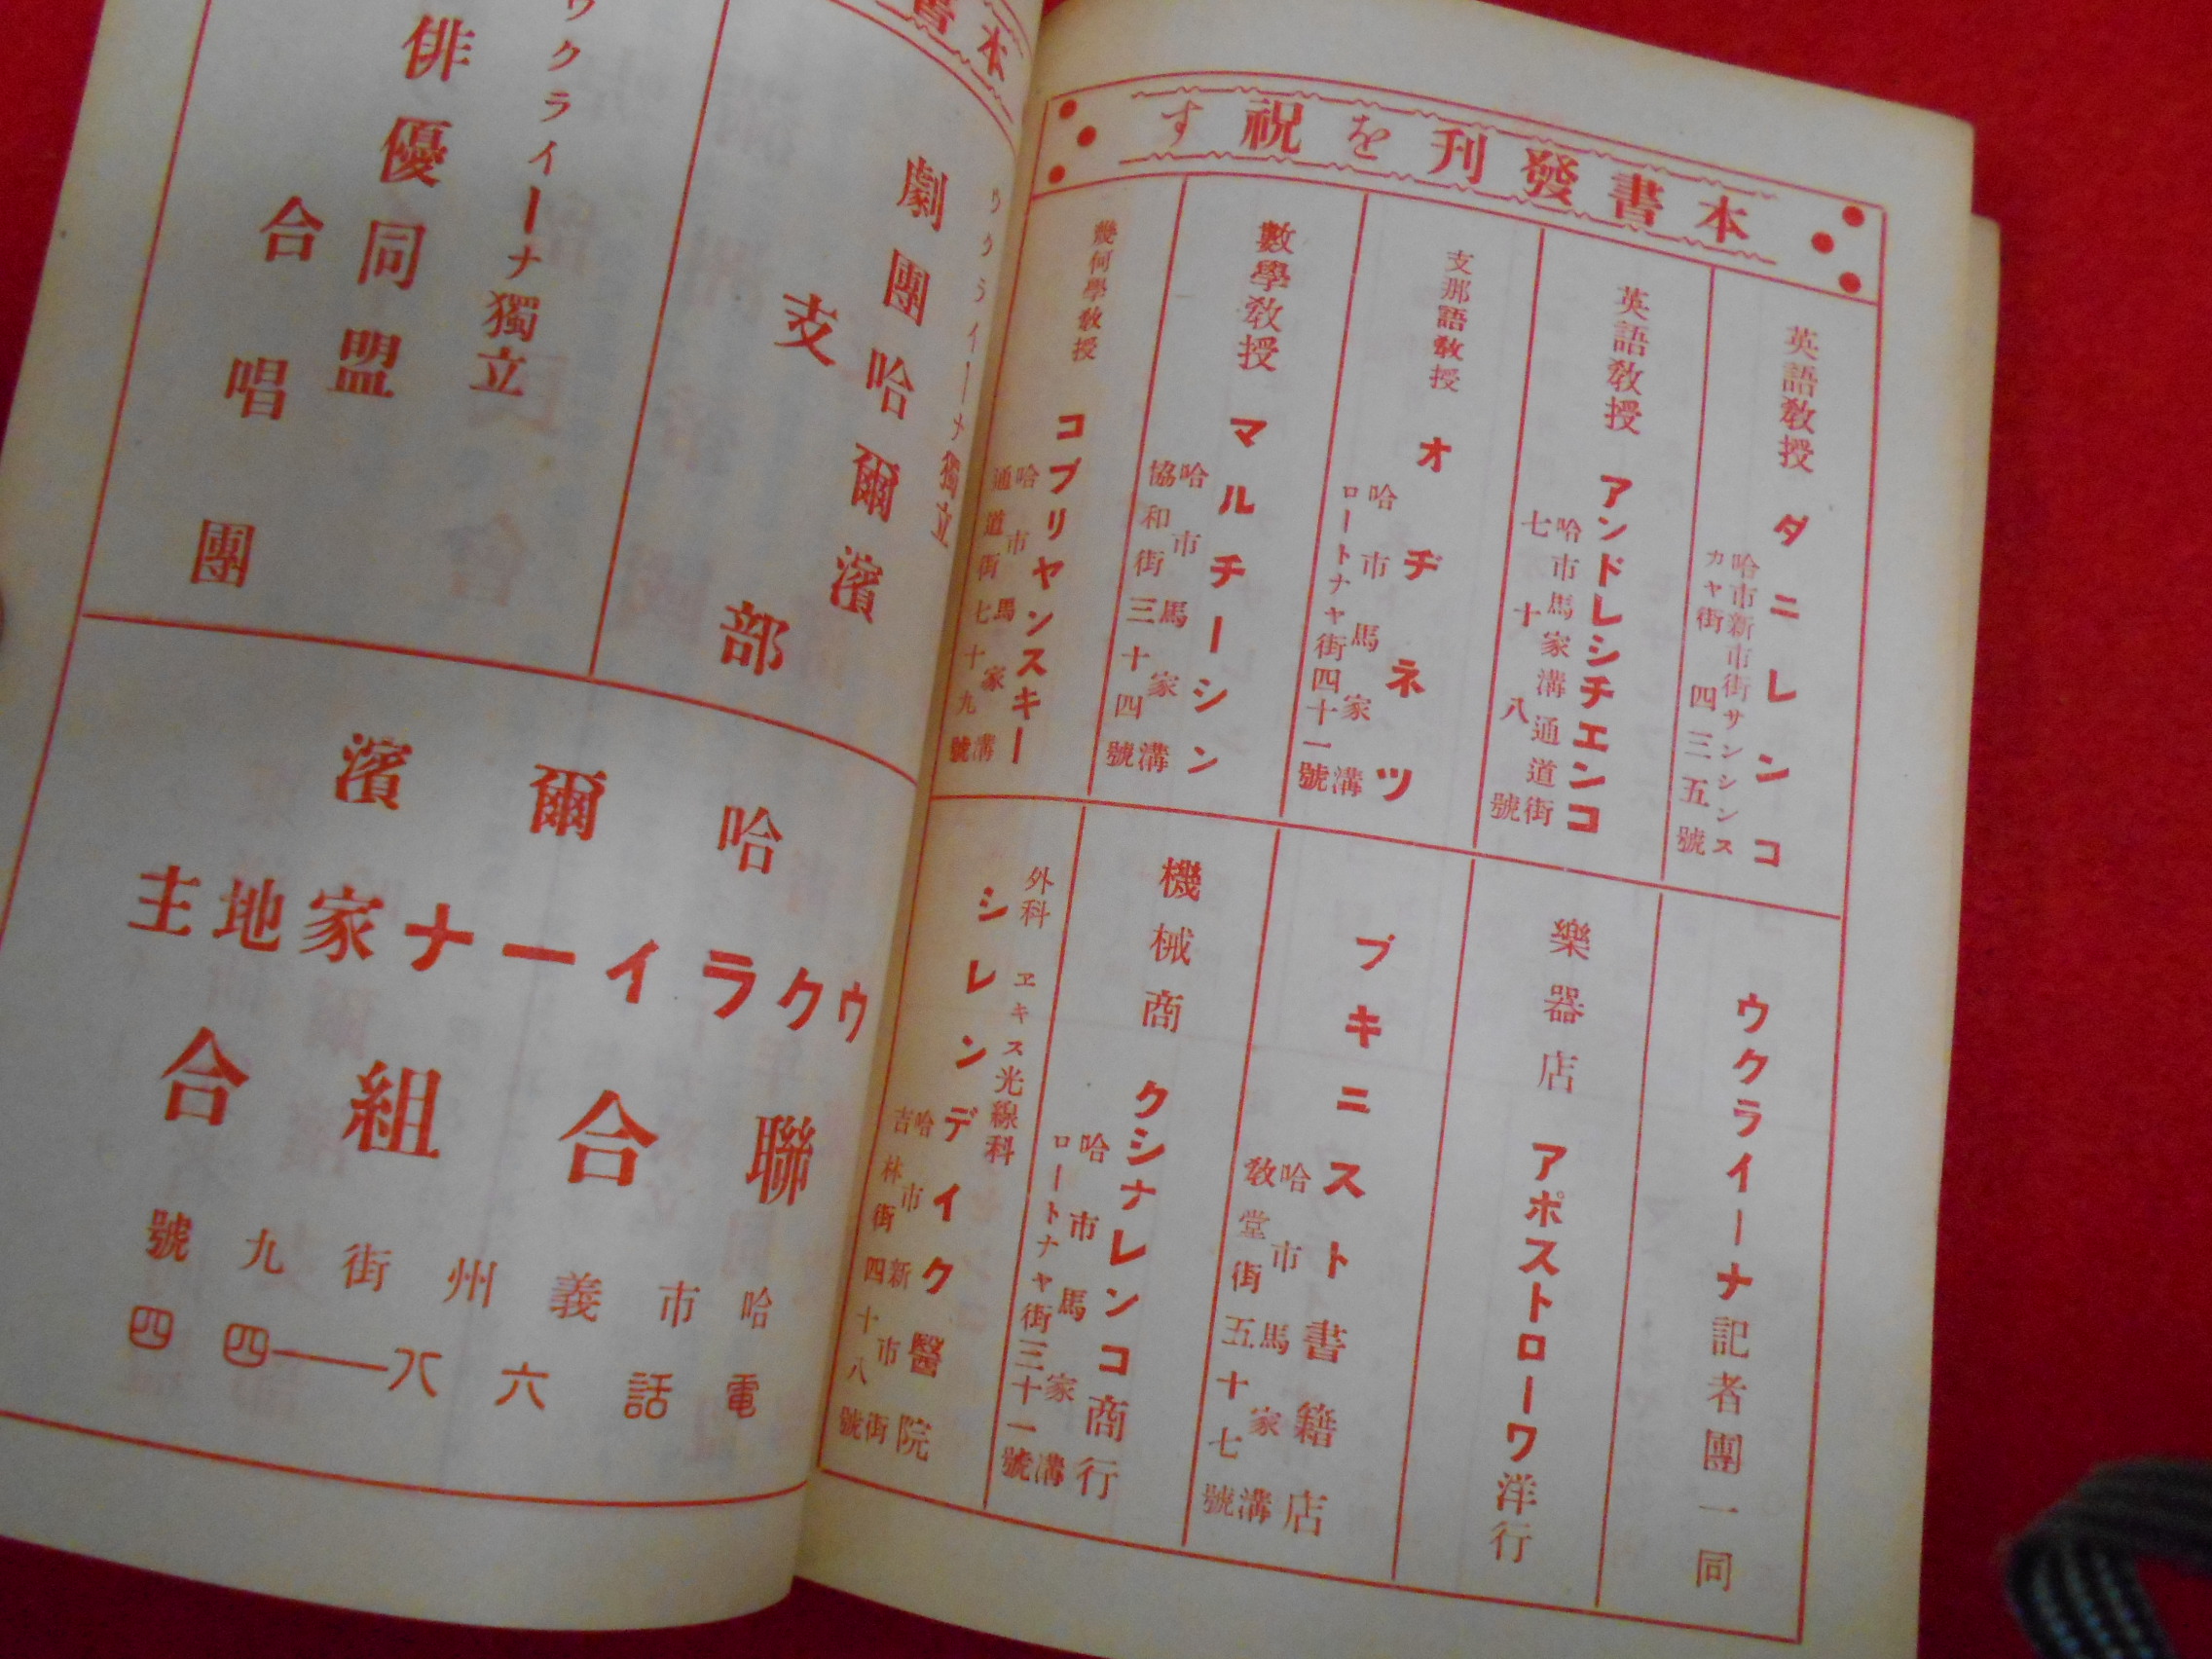 本書發刊を祝す
英語教授 ダニレンコ
哈市新市街サンシンス
カヤ街四三五號
英語教授 アンドレシチエンコ
哈市馬家溝通道街
七十八號
支那語教授 オヂネツ
哈市馬家溝
ロートナヤ街四十一號
數學教授 マルチーシン
哈市馬家溝
協和街三十四號
幾何學教授 コブリヤンスキー
哈市馬家溝
通道街七十九號
ウクライーナ記者團一同
樂器店 アポストローワ洋行
ブキニスト書籍店
哈市馬家溝
教堂街五十七號
機械商 クシナレンコ商行
哈市馬家溝
ロートナヤ街三十一號
外科 ヱキス光線科
シレンデイク醫院
哈市新市街
吉林街四十八號
書本
ウクライーナ獨立
劇團哈爾濱
支部
ウクライーナ獨立
俳優同盟
合唱團
哈爾濱
ウクライーナ家地主
聯合組合
哈市義州街九號
電話六八―四四